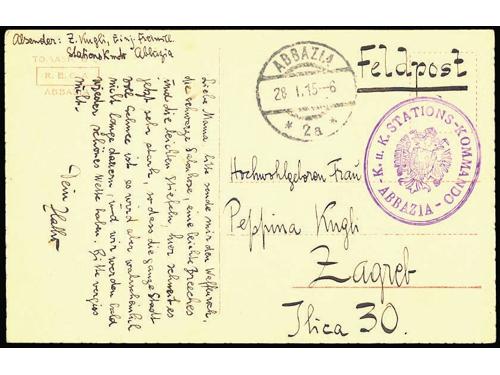 Absender: Z. Kugli, Einj. Freiwill.
Stations Kmdo Abbazia
R. E.
ABBAZIA
28. I. 15 - 6
* 2a *
Feldpost
K. u. K. STATIONS-KOMMANDO
- ABBAZIA -
Hochwohlgeboren Frau
Peppina Kugli
Zagreb
Ilica 30.
Liebe Mama, bitte sende mir den Waffenrock,
die schwarze Salonhose, eine leichte Breeches
und die leichten Stiefeln, hier schneit es
jetzt sehr stark, so dass die ganze Stadt
voll Schnee ist es wird aber wahrscheinlich
nicht lange dauern, und wir werden bald
wieder schönes Wetter haben. Bitte vergiss
nicht.
Dein